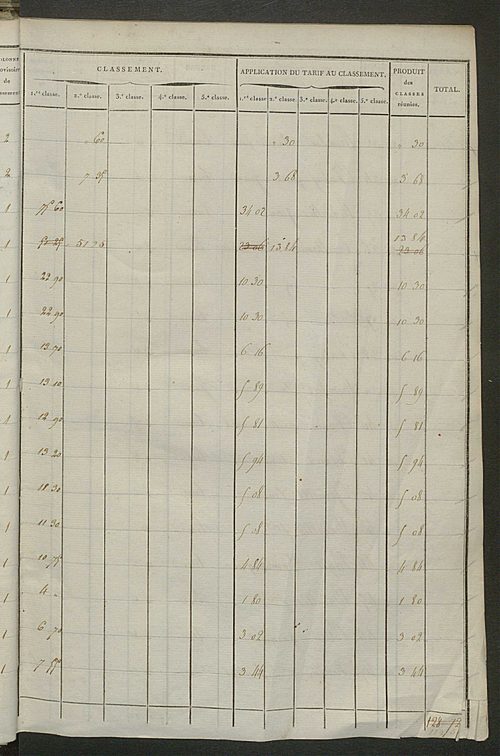 CLASSEMENT. APPLICATION DU TARIF AU CLASSEMENT. PRODUIT des CLASSES réunies. TOTAL.
1.re classe. 2.e classe. 3.e classe. 4.e classe. 5.e classe. 1.re classe 2.e classe. 3.e classe. 4.e classe. 5.e classe.
2 " 60 " 30 " 30
2 3 68 3 68
1 75 60 34 02 34 02
1 51 25 23 06 13 84 13 84
23 06
1 22 90 10 30 10 30
1 22 90 10 30 10 30
1 13 70 6 16 6 16
1 13 10 5 89 5 89
1 12 90 5 81 5 81
1 13 20 5 94 5 94
1 11 30 5 08 5 08
1 11 30 5 08 5 08
1 10 75 4 84 4 84
1 4 " 1 80 1 80
1 6 70 3 02 3 02
1 3 44 3 44